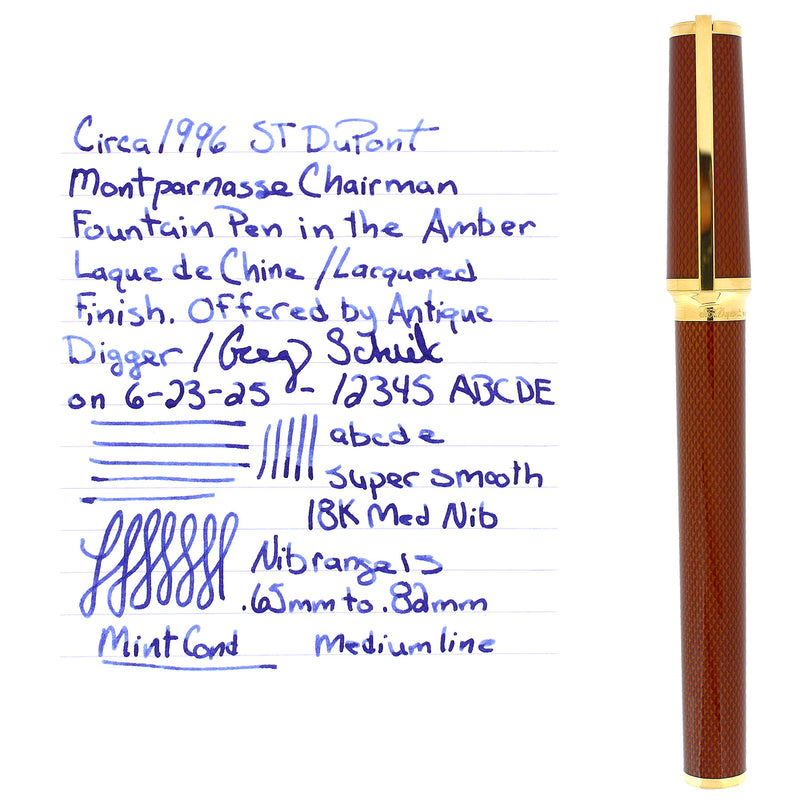 Circa 1996 ST DuPont
Montparnasse Chairman
Fountain Pen in the Amber
Laque de Chine / Lacquered
Finish. Offered by Antique
Digger / Greg
on 6-23-25 - 12345 ABCDE
abcde
super smooth
18K Med Nib
Nib range is
.65mm to .82mm
Mint Cond Medium line